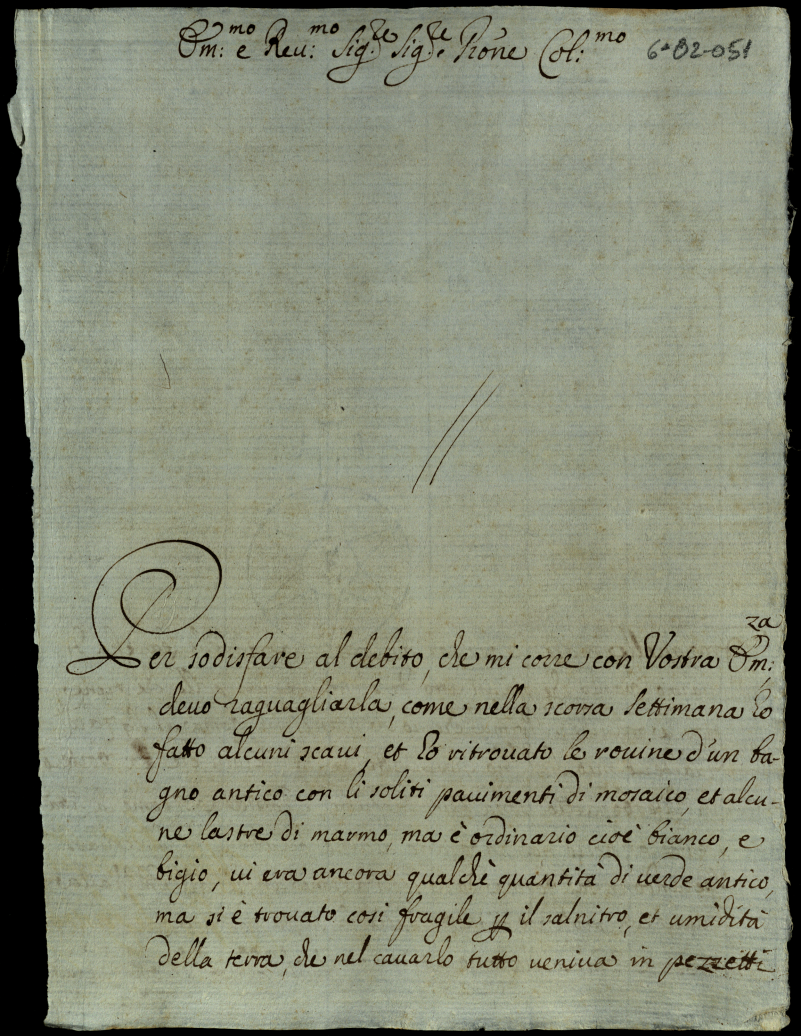 Em:mo e Reu:mo Sig.re Sig.re Prone Col:mo 6-02-051
Per sodisfare al debito, che mi corre con Vostra Em:za
deuo raguagliarla, come nella scorsa settimana ho
fatto alcuni scaui, et ho ritrouato le rouine d'un ba-
gno antico con li soliti pauimenti di mosaico, et alcu-
ne lastre di marmo, ma è ordinario cioè bianco, e
bigio, ui era ancora qualchè quantità di uerde antico,
ma si è trouato cosi fragile p il salnitro, et umidità
della terra, che nel cauarlo tutto ueniua in pezzetti